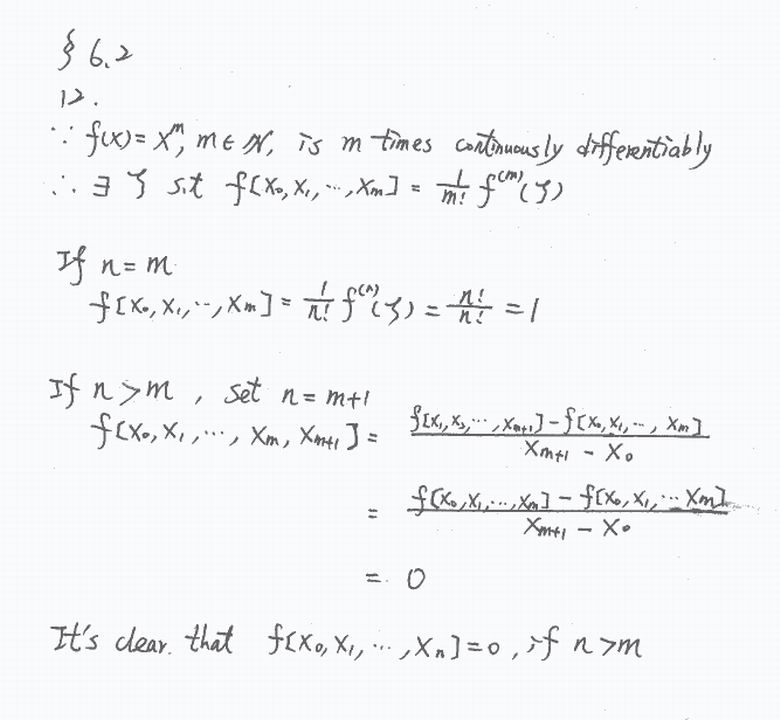 § 6.2
12.
∵ f(x) = x^m, m ∈ N, is m times continuously differentiably
∴ ∃ ζ s.t f[x₀, x₁, ..., xₘ] = 1/m! f^(m)(ζ)
If n = m
f[x₀, x₁, ..., xₘ] = 1/n! f^(n)(ζ) = n!/n! = 1
If n > m , set n = m+1
f[x₀, x₁, ..., xₘ, xₘ₊₁] = (f[x₁, x₂, ..., xₘ₊₁] - f[x₀, x₁, ..., xₘ]) / (xₘ₊₁ - x₀)
= (f[x₀, x₁, ..., xₘ] - f[x₀, x₁, ... xₘ]) / (xₘ₊₁ - x₀)
= 0
It's clear that f[x₀, x₁, ..., xₙ] = 0 , if n > m